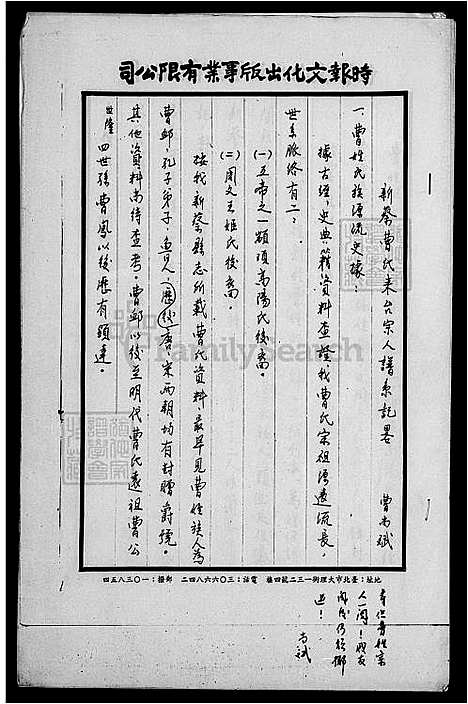 時報文化出版事業有限公司
新蔡曹氏來台宗人譜系記略 曹尚斌
一、曹姓氏族源流史據：
據古經、史典籍資料查證，我曹氏宗祖源遠流長。
世系脈絡有二：
(一)五帝之一顓頊高陽氏後裔。
(二)周文王姬氏後裔。
按我新蔡縣志所載曹氏資料，最早見曹姓族人為
曹卹，孔子弟子，魯人（歷經）唐宋兩朝均有封贈爵號。
其他資料尚待查考。曹卹以後至明代曹氏遠祖曹公
世隆 四世孫曹鳳以後歷有顯達。
地址：臺北市大理街一三二號四樓 電話：三〇六六八四二 郵撥：一〇三八五四
人一閱！
尚斌
FamilySearch